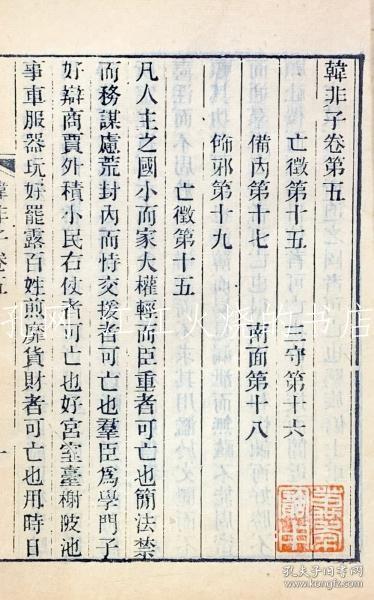 韓非子卷第五
亡徵第十五 三守第十六
備內第十七 南面第十八
飾邪第十九
亡徵第十五
凡人主之國小而家大權輕而臣重者可亡也簡法禁
而務謀慮荒封內而恃交援者可亡也羣臣爲學門子
好辯商賈外積小民右仗者可亡也好宮室臺榭陂池
事車服器玩好罷露百姓煎靡貨財者可亡也用時日
韓非子卷五
一
孔夫子旧书网